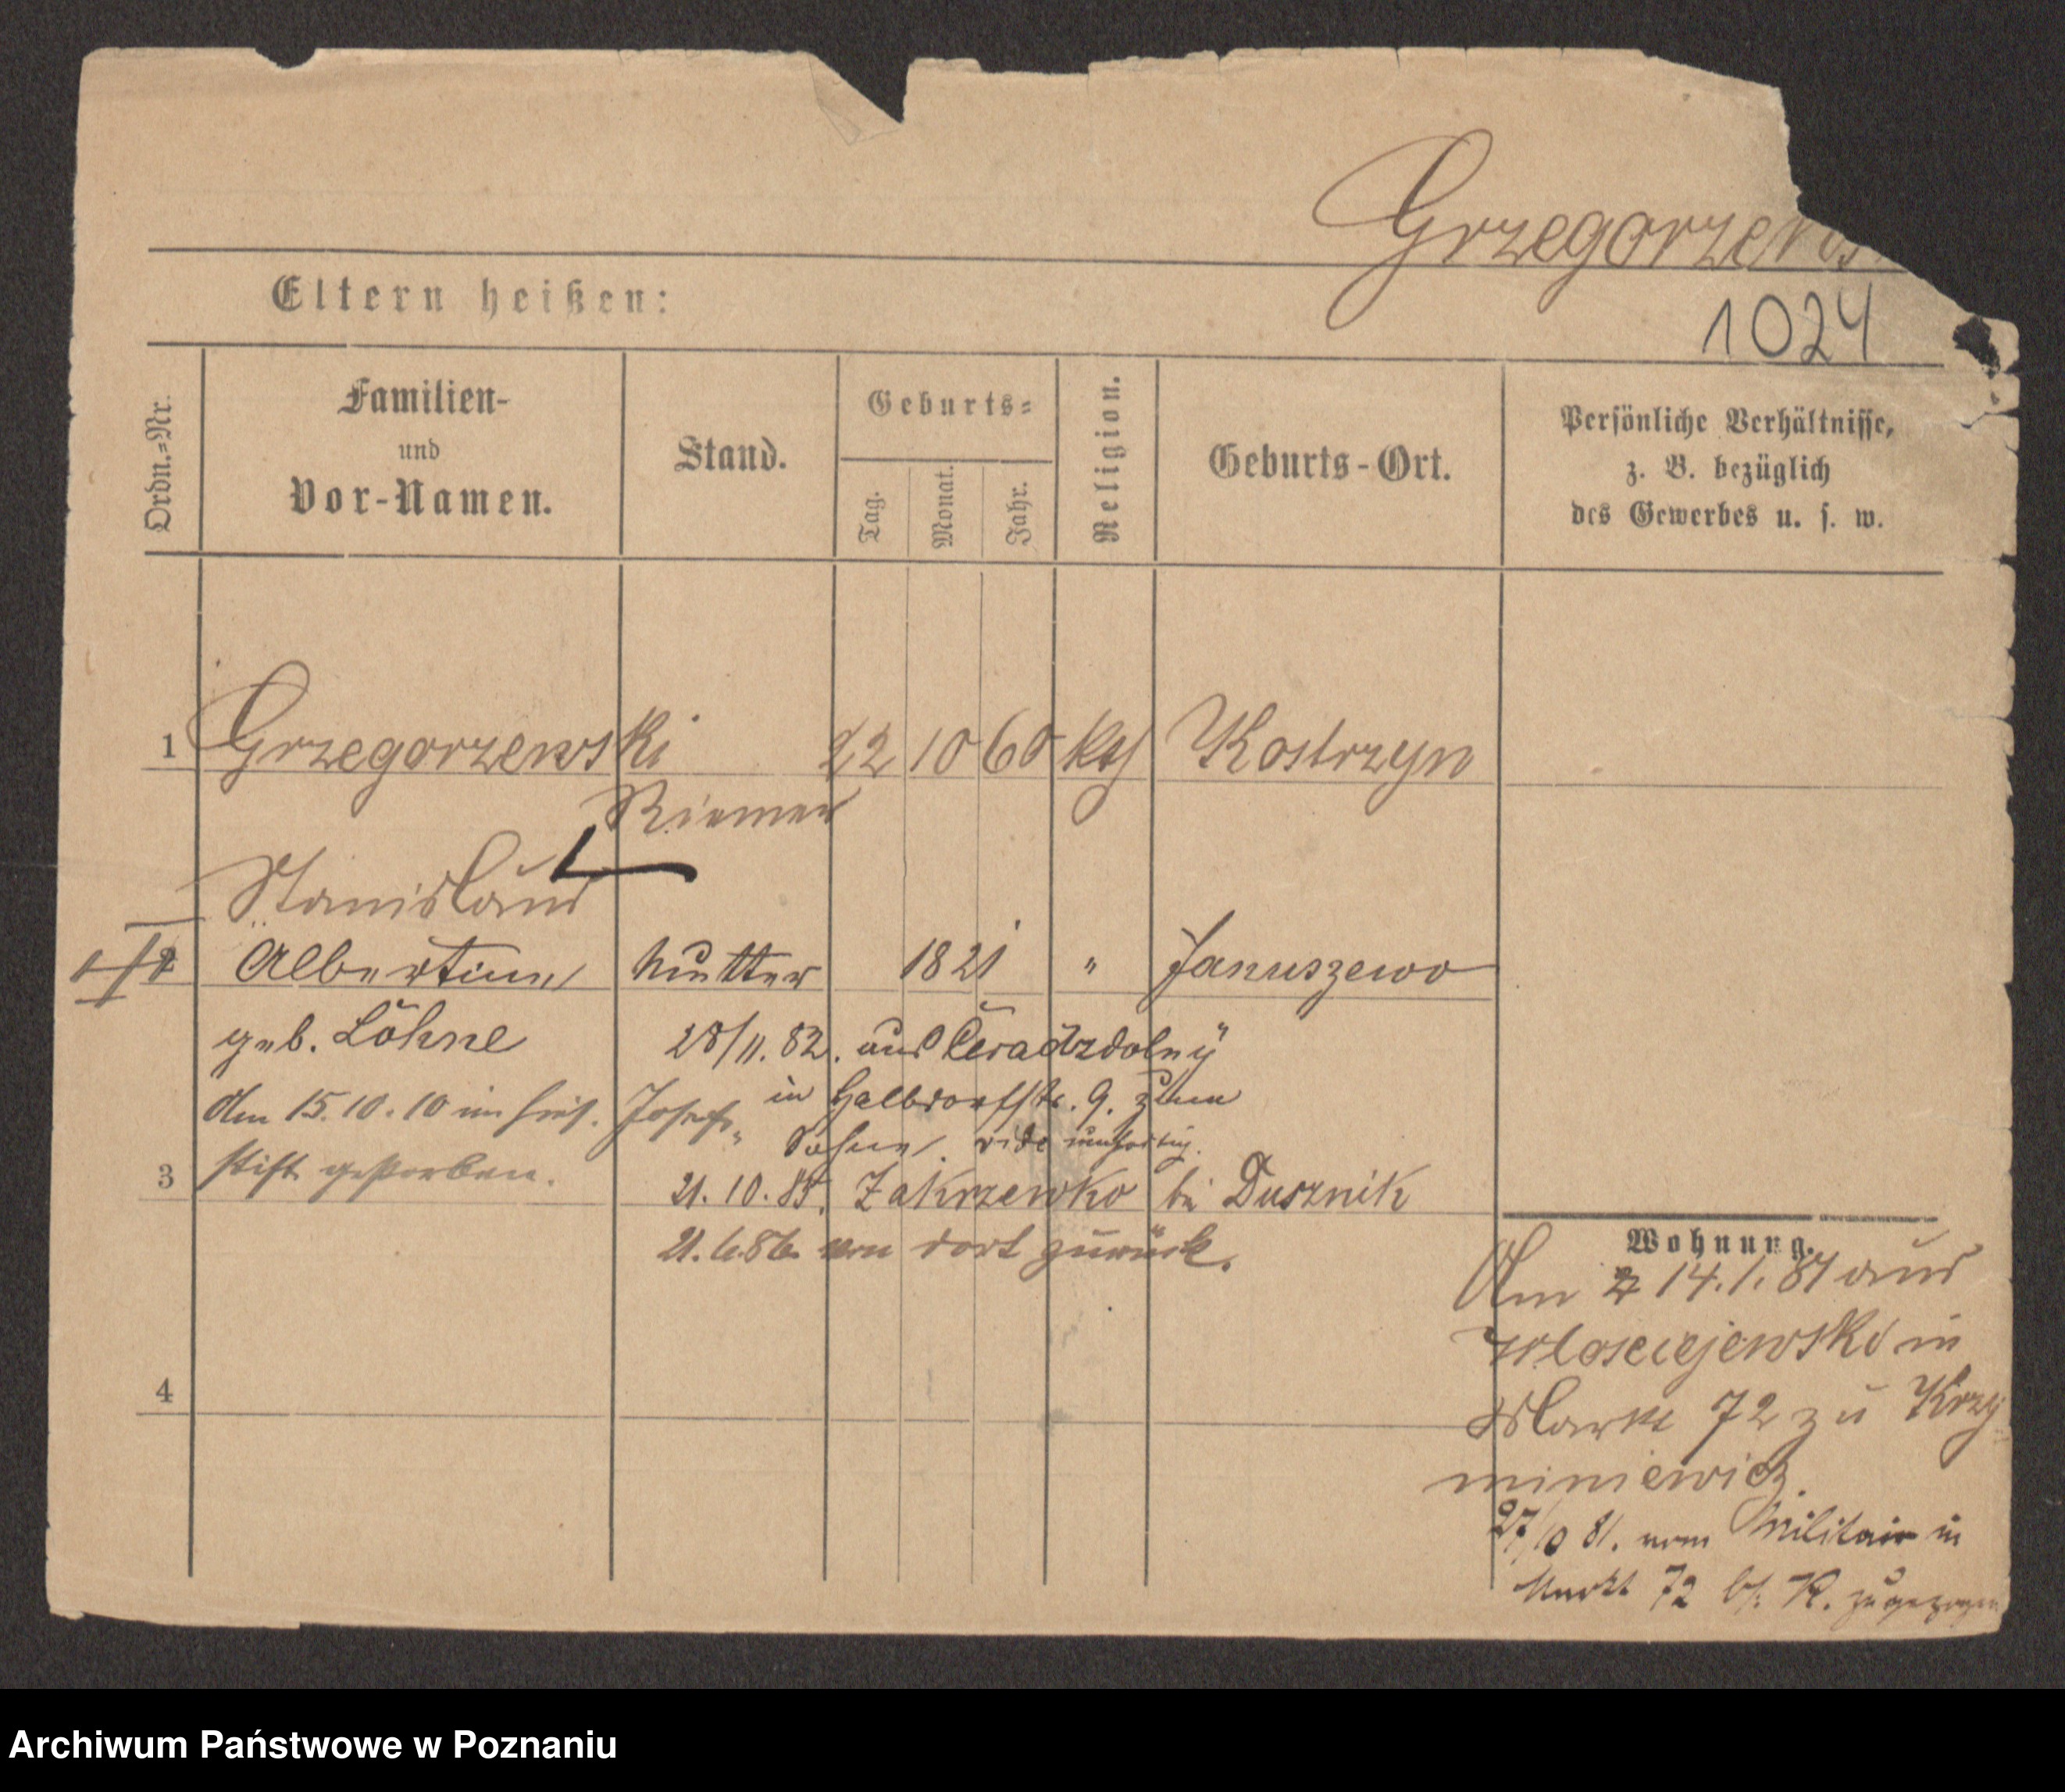 Grzegorzews
1024
Eltern heißen:
Ordn.=Nr.
Familien-
und
Vor-Namen.
Stand.
Geburts=
Tag.
Monat.
Jahr.
Religion.
Geburts-Ort.
Persönliche Verhältnisse,
z. B. bezüglich
des Gewerbes u. s. w.
1 Grzegorzewski 22 10 60 kth Kostrzyn
Riemer
Stanislaus
2 Albertine Mutter 1821 " Januszewo
geb. Löhne 28/11. 82. aus Ceradzdolny
den 15.10.10 im hies. Josefs- in Halbdorfstr. 9. zum
Sohne. vide
3 stift gestorben. 21. 10. 85. Zakrzewko bei Dusznik
21.6.86 von dort zurück.
4
Wohnung.
Am 14.1.81 aus
Wlosciejewski in
Markt 72 zu Krzy
miniewicz.
27/10 81. vom Militair in
Markt 72 b/. K. zugezogen
Archiwum Państwowe w Poznaniu